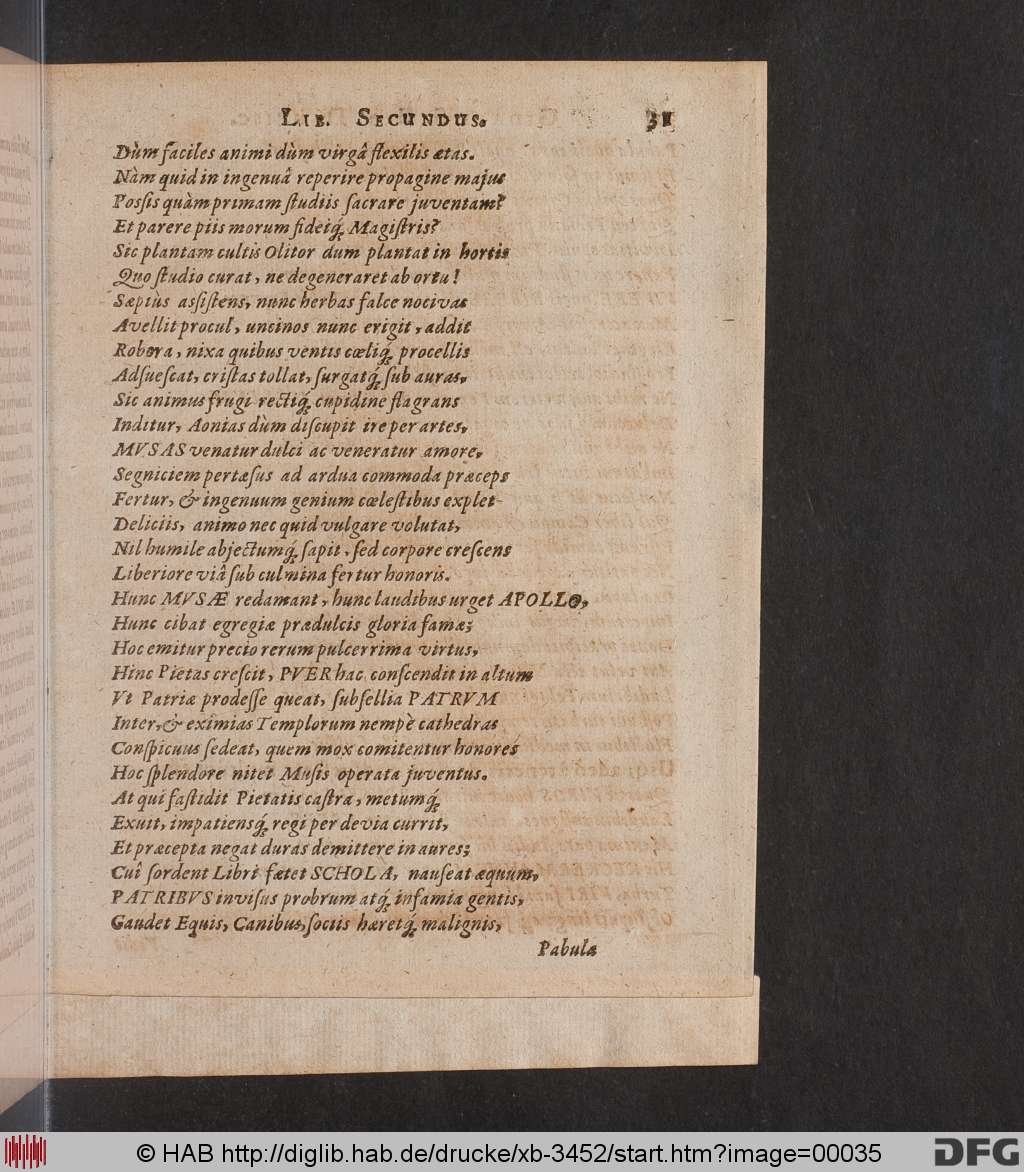 LIB. SECUNDUS. 31
Dùm faciles animi dùm virgâ flexilis ætas.
Nàm quid in ingenuâ reperire propagine majus
Possis quàm primam studiis sacrare juventam?
Et parere piis morum fideiq́; Magistris?
Sic plantam cultis Olitor dum plantat in hortis
Quo studio curat, ne degeneraret ab ortu!
Sæpiùs assistens, nunc herbas falce nocivas
Avellit procul, uncinos nunc erigit, addit
Robora, nixa quibus ventis cœliq́; procellis
Adsuescat, cristas tollat, surgatq́; sub auras,
Sic animus frugi rectiq́; cupidine flagrans
Inditur, Aonias dùm discupit ire per artes,
MVSAS venatur dulci ac veneratur amore,
Segniciem pertæsus ad ardua commoda præceps
Fertur, & ingenuum genium cœlestibus explet
Deliciis, animo nec quid vulgare volutat,
Nil humile abjectumq́; sapit, sed corpore crescens
Liberiore viâ sub culmina fertur honoris.
Hunc MVSÆ redamant, hunc laudibus urget APOLLO,
Hunc cibat egregiæ prædulcis gloria famæ;
Hoc emitur precio rerum pulcerrima virtus,
Hinc Pietas crescit, PVER hac conscendit in altum
Vt Patriæ prodesse queat, subsellia PATRVM
Inter, & eximias Templorum nempè cathedras
Conspicuus sedeat, quem mox comitentur honores
Hoc splendore nitet Musis operata juventus.
At qui fastidit Pietatis castra, metumq́;
Exuit, impatiensq́; regi per devia currit,
Et præcepta negat duras demittere in aures;
Cuî sordent Libri fætet SCHOLA, nauseat æquum,
PATRIBVS invisus probrum atq́; infamia gentis,
Gaudet Equis, Canibus, sociis hæretq́; malignis,
Pabulæ
© HAB http://diglib.hab.de/drucke/xb-3452/start.htm?image=00035
DFG